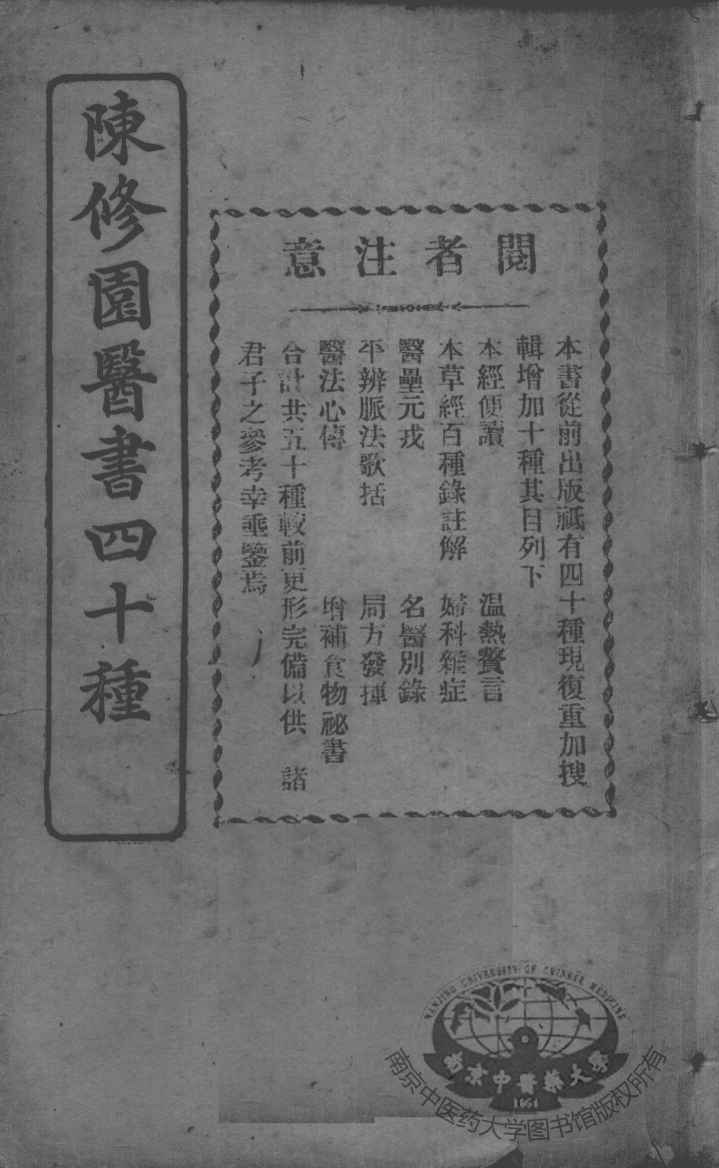 陳修園醫書四十種
閱者注意
本書從前出版祗有四十種現復重加搜
輯增加十種其目列下
本經便讀 溫熱贅言
本草經百種錄註解 婦科雜症
醫壘元戎 名醫別錄
平辨脈法歌括 局方發揮
醫法心傳 增補食物祕書
合計共五十種較前更形完備以供 諸
君子之參考幸垂鑒焉
NANJING UNIVERSITY OF CHINESE MEDICINE
南京中醫藥大學
南京中医药大学图书馆版权所有